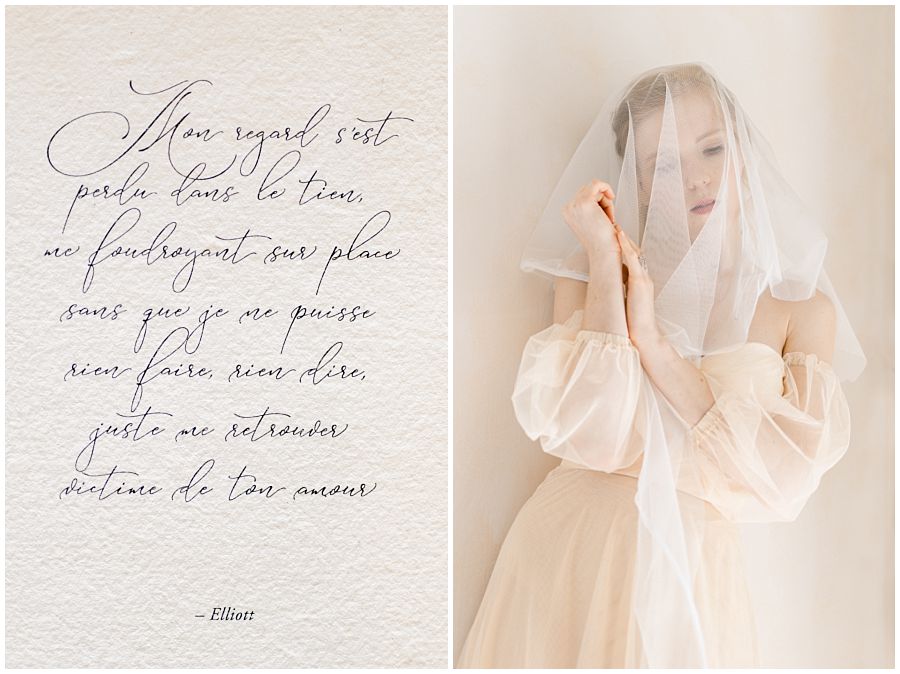 Mon regard s'est
perdu dans le tien,
me foudroyant sur place
sans que je ne puisse
rien faire, rien dire,
juste me retrouver
victime de ton amour
– Elliott